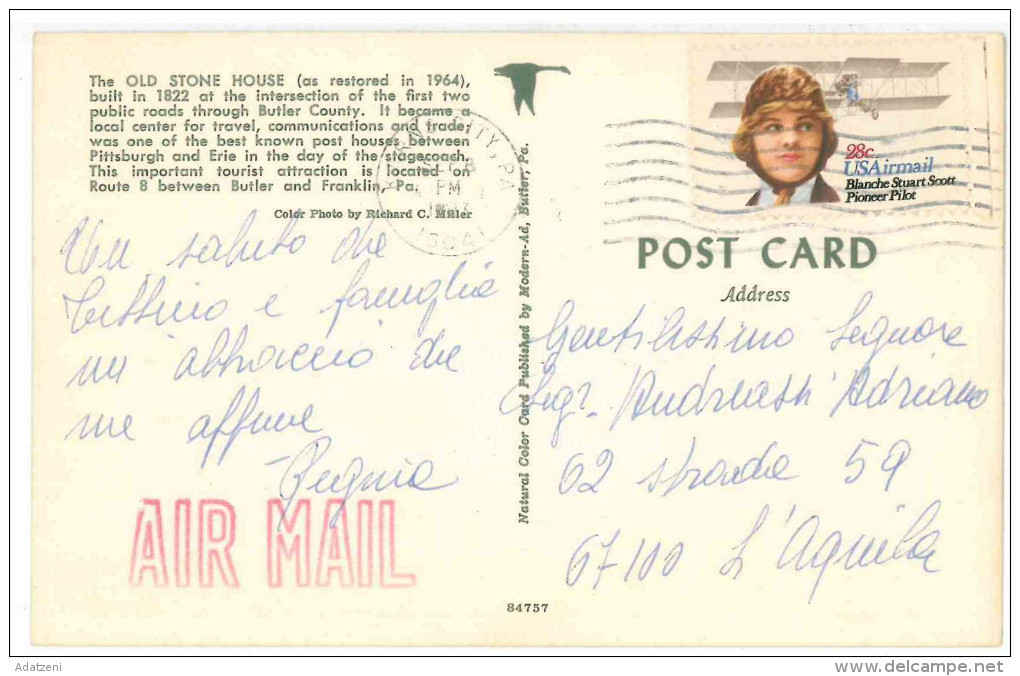 The OLD STONE HOUSE (as restored in 1964),
built in 1822 at the intersection of the first two
public roads through Butler County. It became a
local center for travel, communications and trade;
was one of the best known post houses between
Pittsburgh and Erie in the day of the stagecoach.
This important tourist attraction is located on
Route 8 between Butler and Franklin, Pa.
Color Photo by Richard C. Miller
Un saluto da
e famiglia
un abbraccio da
me
AIR MAIL
Natural Color Card Published by Modern-Ad, Butler, Pa.
CITY, PA
PM
28c
USAirmail
Blanche Stuart Scott
Pioneer Pilot
POST CARD
Address
Gentilissimo Signore
Sigr. Andreassi Adriano
62 strada 59
67100 L'Aquila
84757
Adatzeni
www.delcampe.net